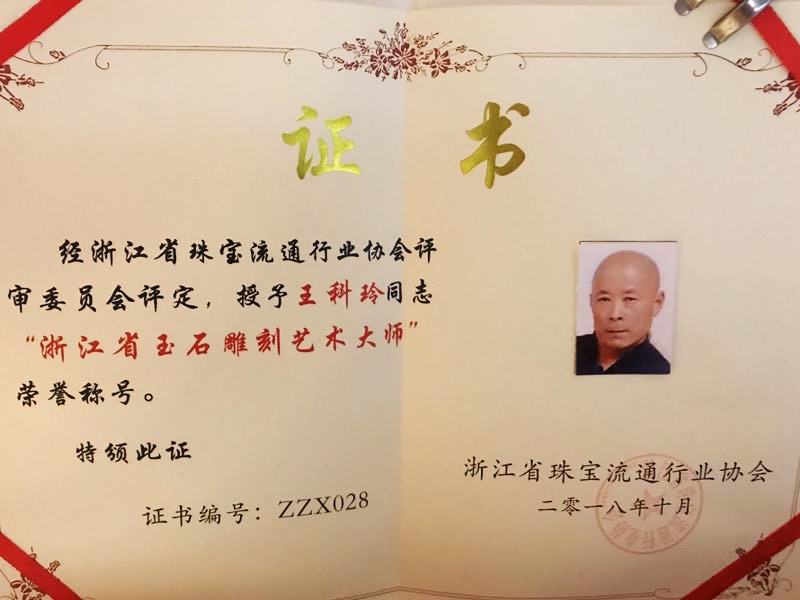 证书
经浙江省珠宝流通行业协会评
审委员会评定，授予王科玲同志
“浙江省玉石雕刻艺术大师”
荣誉称号。
特颁此证
证书编号：ZZX028
浙江省珠宝流通行业协会
二零一八年十月